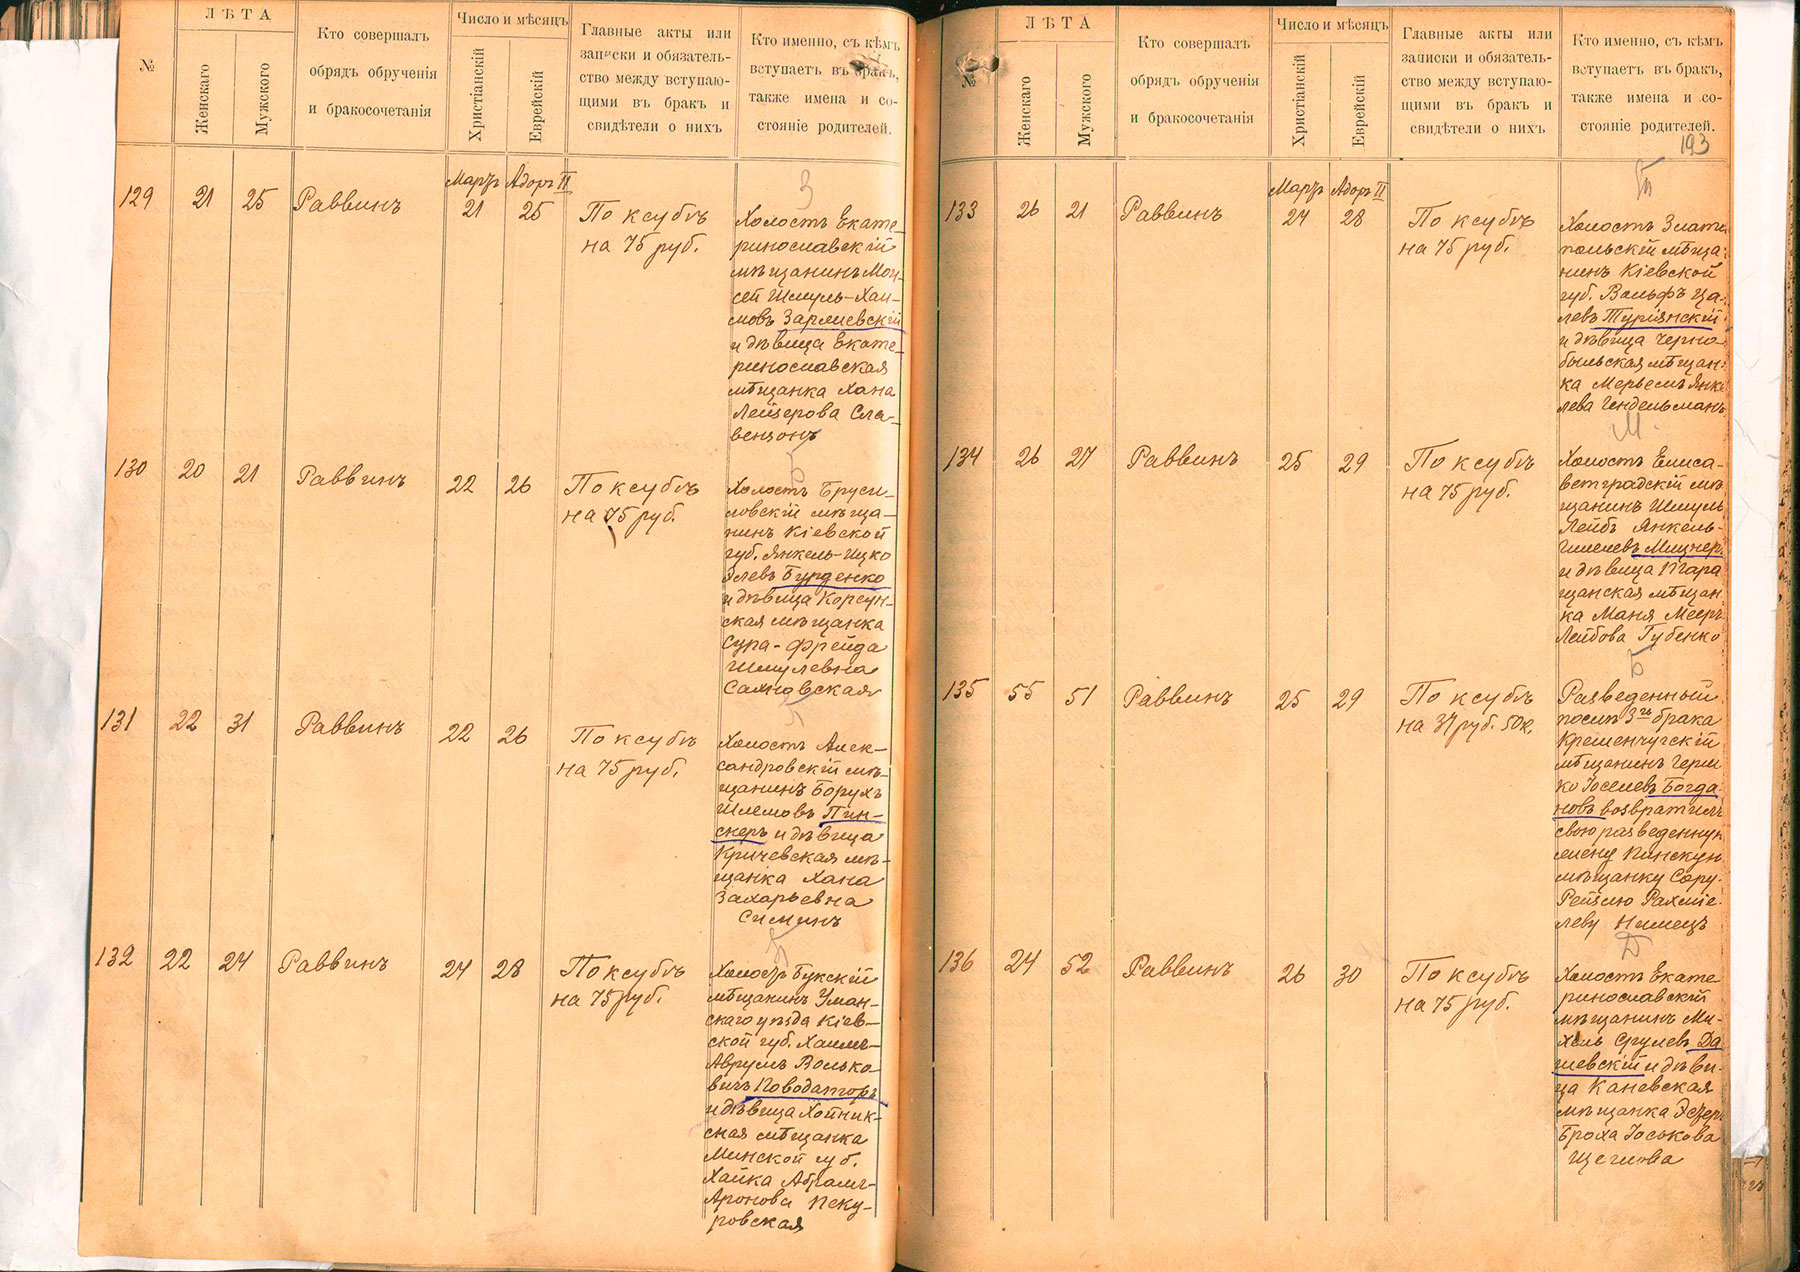 №
ЛѢТА
Женскаго
Мужского
Кто совершалъ
обрядъ обрученія
и бракосочетанія
Число и мѣсяцъ
Христіанскій
Еврейскій
Главные акты или
записки и обязатель-
ство между вступаю-
щими въ бракъ и
свидѣтели о нихъ
Кто именно, съ кѣмъ
вступаетъ въ бракъ,
также имена и со-
стояніе родителей.
129 21 25 Раввинъ
Мартъ Адоръ II
21 25
По ксубѣ
на 75 руб.
З
Холостъ Екате-
ринославскій
мѣщанинъ Мои-
сей Шмуль-Хаи-
мовъ Зарлиевскій
и дѣвица Екате-
ринославская
мѣщанка Хана
Лейзерова Сла-
вензонъ
130 20 21 Раввинъ 22 26
По ксубѣ
на 75 руб.
Б
Холостъ Бруси-
ловскій мѣща-
нинъ Кіевской
губ. Янкель-Ицко
Элевъ Бурденко
и дѣвица Корсун-
ская мѣщанка
Сура-Фрейда
Шмулевна
Сахновская
131 22 31 Раввинъ 22 26
По ксубѣ
на 75 руб.
П
Холостъ Алек-
сандровскій мѣ-
щанинъ Борухъ
Шлемовъ Пин-
скеръ и дѣвица
Кричевская мѣ-
щанка Хана
Захарьевна
Симкинъ
132 22 24 Раввинъ 24 28
По ксубѣ
на 75 руб.
П
Холостъ Букскій
мѣщанинъ Уман-
скаго уѣзда Кіев-
ской губ. Хаимъ-
Аврумъ Волько-
вичъ Поводаторъ
и дѣвица Хойник-
ская мѣщанка
Минской губ.
Хайка Абрамъ-
Аронова Пеку-
ровская
№
ЛѢТА
Женскаго
Мужского
Кто совершалъ
обрядъ обрученія
и бракосочетанія
Число и мѣсяцъ
Христіанскій
Еврейскій
Главные акты или
записки и обязатель-
ство между вступаю-
щими въ бракъ и
свидѣтели о нихъ
Кто именно, съ кѣмъ
вступаетъ въ бракъ,
также имена и со-
стояніе родителей.
193
133 26 21 Раввинъ
Мартъ Адоръ II
24 28
По ксубѣ
на 75 руб.
Т
Холостъ Злато-
польскій мѣща-
нинъ Кіевской
губ. Вольфъ Ца-
левъ Турянскій
и дѣвица Черно-
быльская мѣщан-
ка Мерьемъ Янке-
лева Гендельманъ
134 26 27 Раввинъ 25 29
По ксубѣ
на 75 руб.
М.
Холостъ Елиса-
ветградскій мѣ-
щанинъ Шмуль
Лейбъ Янкель-
Шмелевъ Мицнер
и дѣвица Тара-
щанская мѣщан-
ка Маня Мееръ
Лейбова Губенко
135 55 51 Раввинъ 25 29
По ксубѣ
на 37 руб. 50 к.
Б
Разведенный
послѣ 3го брака
Кременчугскій
мѣщанинъ Герш-
ко Іоселевъ Богда-
новъ возвратилъ
свою разведенную
жену Пинскую
мѣщанку Сору-
Рейзлю Рахміе-
леву Нимецъ
136 24 52 Раввинъ 26 30
По ксубѣ
на 75 руб.
Д
Холостъ Екате-
ринославскій
мѣщанинъ Ми-
хель Срулевъ Да-
шевскій и дѣви-
ца Каневская
мѣщанка Эстеръ
Броха Іоськова
Щеглова